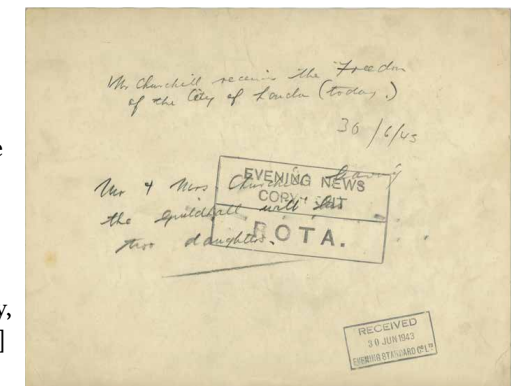 Mr Churchill receives the Freedom
of the City of London (today.)
30/6/43
Mr & Mrs Churchill leaving
the Guildhall with his
two daughters.
EVENING NEWS
COPYRIGHT
ROTA.
RECEIVED
30 JUN 1943
EVENING STANDARD Co. Ld
e
y,
]